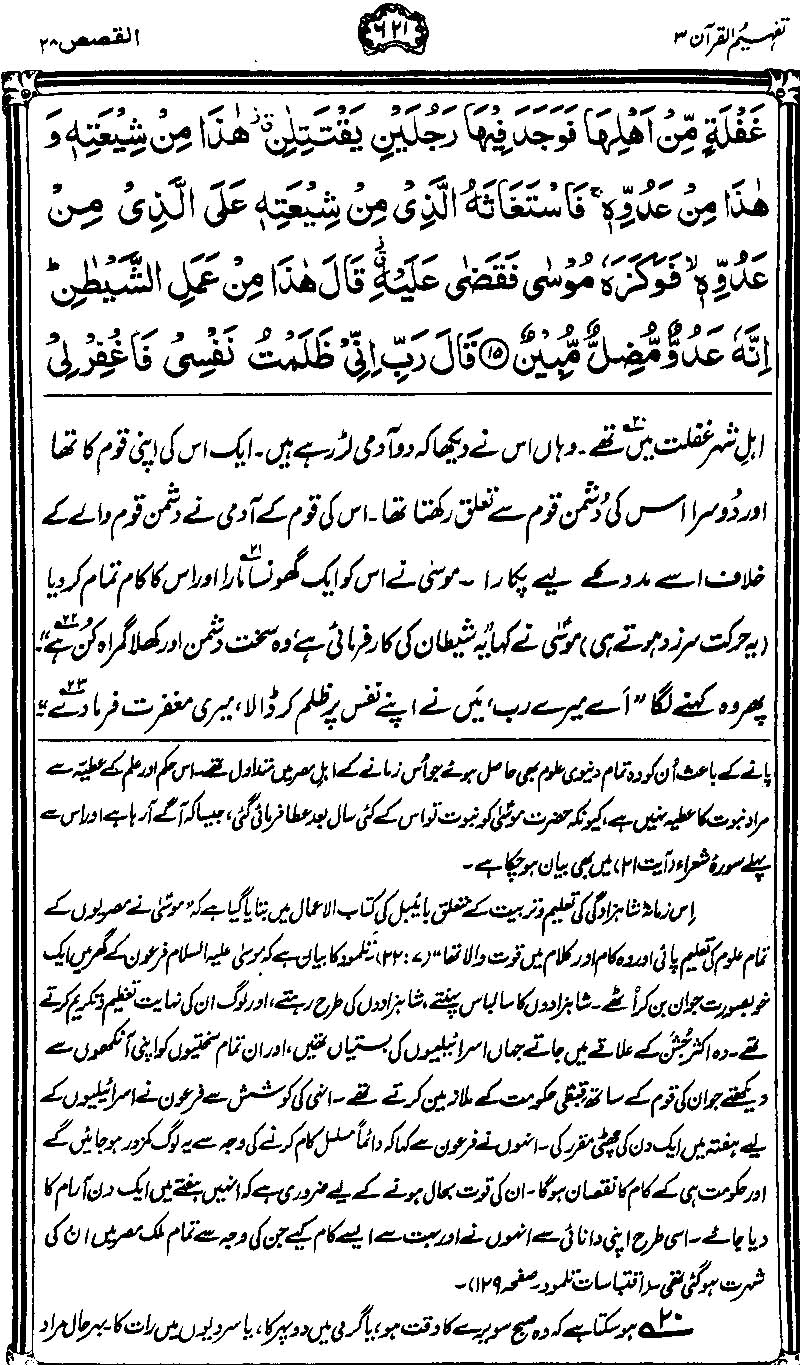 تفہیم القرآن ۳
۶۲۱
القصص ۲۸
غَفْلَةٍ مِّنْ اَهْلِهَا فَوَجَدَ فِيْهَا رَجُلَيْنِ يَقْتَتِلٰنِ ۫ هٰذَا مِنْ شِيْعَتِهٖ وَ
هٰذَا مِنْ عَدُوِّهٖ ۚ فَاسْتَغَاثَهُ الَّذِيْ مِنْ شِيْعَتِهٖ عَلَى الَّذِيْ مِنْ
عَدُوِّهٖ ۙ فَوَكَزَهٗ مُوْسٰى فَقَضٰى عَلَيْهِ ۫ قَالَ هٰذَا مِنْ عَمَلِ الشَّيْطٰنِ ؕ
اِنَّهٗ عَدُوٌّ مُّضِلٌّ مُّبِيْنٌ ⑮ قَالَ رَبِّ اِنِّيْ ظَلَمْتُ نَفْسِيْ فَاغْفِرْ لِيْ
اہلِ شہر غفلت میں۲۰ تھے۔ وہاں اس نے دیکھا کہ دو آدمی لڑ رہے ہیں۔ ایک اس کی اپنی قوم کا تھا
اور دُوسرا اس کی دُشمن قوم سے تعلق رکھتا تھا۔ اس کی قوم کے آدمی نے دشمن قوم والے کے
خلاف اسے مدد کے لیے پکارا ۔ موسیٰ نے اس کو ایک گھونسا۲۱ مارا اور اس کا کام تمام کر دیا
(یہ حرکت سرزد ہوتے ہی) موسیٰؑ نے کہا ”یہ شیطان کی کارفرمائی ہے، وہ سخت دشمن اور کھلا گمراہ کن ہے۲۲“
پھر وہ کہنے لگا ”اَے میرے رب، مَیں نے اپنے نفس پر ظلم کر ڈالا، میری مغفرت فرما دے۲۳“
پانے کے باعث اُن کو وہ تمام دنیوی علوم بھی حاصل ہوئے جو اُس زمانے کے اہلِ مصر میں متداول تھے۔ اس حکم اور علم کے عطیہ سے
مراد نبوت کا عطیہ نہیں ہے، کیونکہ حضرت موسیٰؑ کو نبوت تو اس کے کئی سال بعد عطا فرمائی گئی، جیسا کہ آگے آ رہا ہے اور اس سے
پہلے سورۂ شعراء (آیت ۲۱) میں بھی بیان ہو چکا ہے۔
اِس زمانۂ شاہزادگی کی تعلیم و تربیت کے متعلق بائیبل کی کتاب الاعمال میں بتایا گیا ہے کہ ”موسیٰؑ نے مصریوں کے
تمام علوم کی تعلیم پائی اور وہ کام اور کلام میں قوت والا تھا“ (۷:۲۲) تلمود کا بیان ہے کہ موسیٰ علیہ السلام فرعون کے گھر میں ایک
خوبصورت جوان بن کر اٹھے۔ شاہزادوں کا سا لباس پہنتے، شاہزادوں کی طرح رہتے، اور لوگ ان کی نہایت تعظیم و تکریم کرتے
تھے۔ وہ اکثر جُشن کے علاقے میں جاتے جہاں اسرائیلیوں کی بستیاں تھیں، اور ان تمام سختیوں کو اپنی آنکھوں سے
دیکھتے جو ان کی قوم کے ساتھ قبطی حکومت کے ملازمین کرتے تھے۔ انہی کی کوشش سے فرعون نے اسرائیلیوں کے
لیے ہفتہ میں ایک دن کی چھٹی مقرر کی۔ انہوں نے فرعون سے کہا کہ دائماً مسلسل کام کرنے کی وجہ سے یہ لوگ کمزور ہو جائیں گے
اور حکومت ہی کے کام کا نقصان ہوگا۔ ان کی قوت بحال ہونے کے لیے ضروری ہے کہ انہیں ہفتے میں ایک دن آرام کا
دیا جائے۔ اسی طرح اپنی دانائی سے انہوں نے اور بہت سے ایسے کام کیے جن کی وجہ سے تمام ملک مصر میں ان کی
شہرت ہو گئی تھی۔ (اقتباسات تلمود۔ صفحہ ۱۲۹)۔
۲۰ ہو سکتا ہے کہ وہ صبح سویرے کا وقت ہو، یا گرمی میں دوپہر کا، یا سردیوں میں رات کا۔ بہرحال مراد